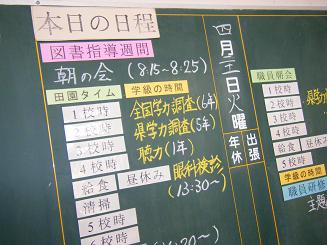 本日の日程
図書指導週間
朝の会 (8:15~8:25)
田園タイム 学級の時間
1校時 全国学力調査(6年)
2校時 県学力調査(5年)
3校時 聴力(1年)
4校時
給食 昼休み 眼科検診
(13:30~)
清掃
5校時
6校時
四月二十一日火曜
出張
年休
職員朝会
1校時
2校時
3校時
4校時
給食 昼
5校時
学級の時間
職員研修